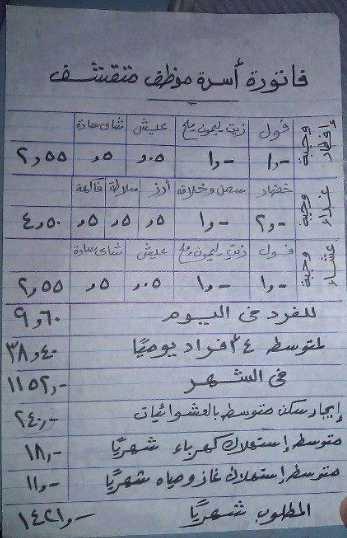 فاتورة أسرة موظف متقشف
وجبة إفطار فول زيت ليمون ملح عيش شاى سادة
١,- ١,- ,٠٥ ,٥ ٢,٥٥
وجبة غداء خضار سمن وخلافه أرز سلاطة فاكهة
٢,- ١,- ,٥ ,٥ ,٥ ٤,٥٠
وجبة عشاء فول زيت ليمون ملح عيش شاى سادة
١,- ١,- ,٠٥ ,٥ ٢,٥٥
للفرد فى اليوم ٩,٦٠
لمتوسط ٤ أفراد يوميًا ٣٨,٤٠
فى الشهر ١١٥٢,-
إيجار سكن متوسط بالعشوائيات ٢٤٠,-
متوسط إستهلاك كهرباء شهريًا ١٨,-
متوسط إستهلاك غاز ومياه شهريًا ١١,-
المطلوب شهريًا ١٤٢١,-